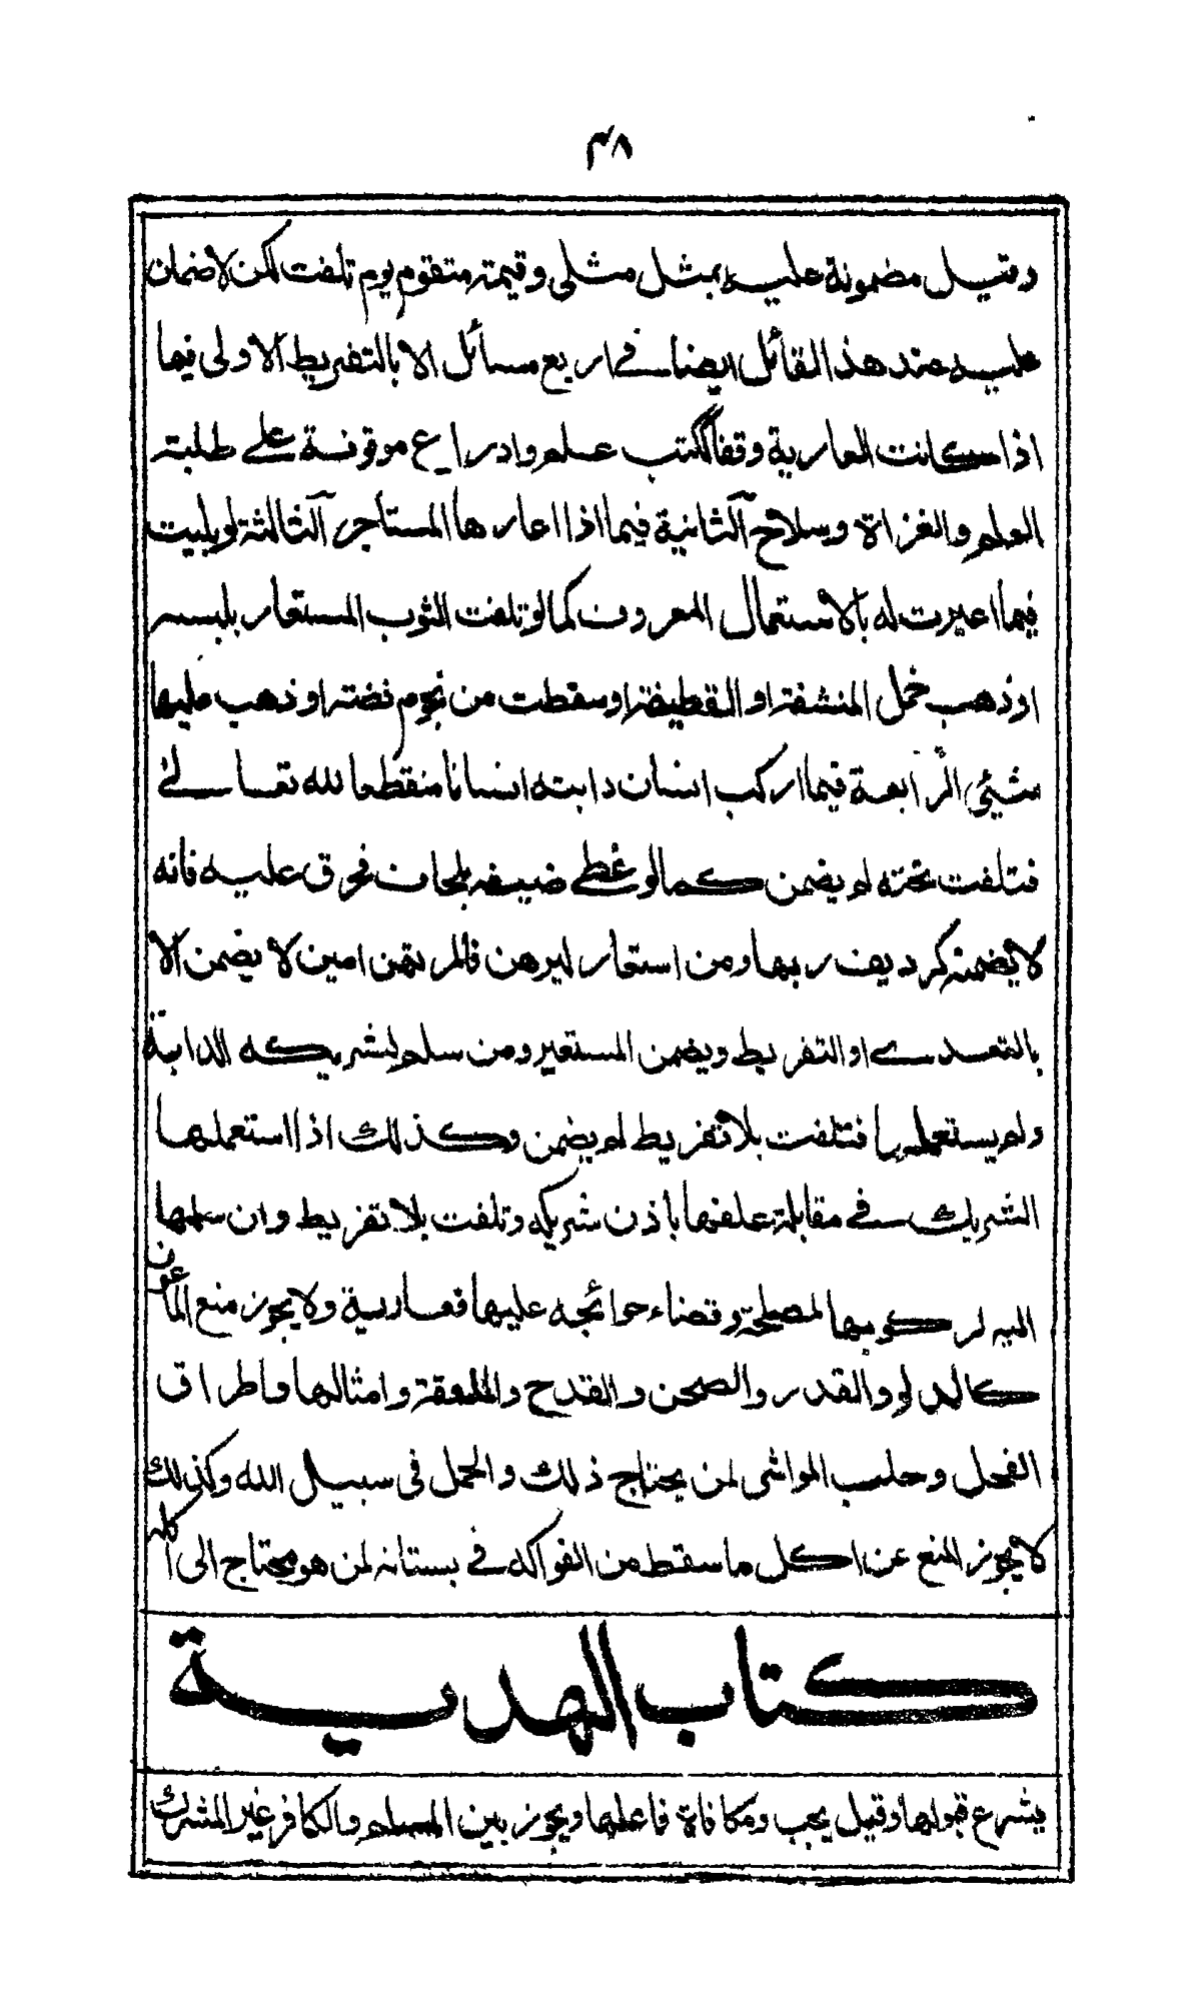 ٣٨
وقيل مضمونة عليه بمثل مثلي وقيمة متقوم يوم تلفت لكن لا ضمان
عليه عند هذا القائل ايضا في اربع مسائل الا بالتفريط الاولى فيما
اذا كانت العارية وقفا ككتب علم وادراع موقوفة على طلبة
العلم والغزاة وسلاح الثانية فيما اذا اعارها المستاجر الثالثة لو بليت
فيما اعيرت له بالاستعمال المعروف كما لو تلفت الثوب المستعار بلبسه
او ذهب خمل المنشفة او القطيفة او سقطت من نجوم فضة او ذهب عليها
شيئ الرابعة فيما اركب انسان دابته انسانا منقطعا لله تعالى
فتلفت تحته لم يضمن كما لو غطى ضيفه بلحاف فحرق عليه فانه
لا يضمنه كرديف ربها ومن استعار ليرهن فالمرتهن امين لا يضمن الا
بالتعدي او التفريط ويضمن المستعير ومن سلم لشريكه الدابة
ولم يستعملها فتلفت بلا تفريط لم يضمن وكذلك اذا استعملها
الشريك في مقابلة علفها باذن شريكه وتلفت بلا تفريط وان سلمها
اليه لركوبها لمصلحة وقضاء حوائجه عليها فعارية ولا يجوز منع الماعون
كالدلو والقدر والصحن والقدح والملعقة وامثالها واطراق
الفحل وحلب المواشي لمن يحتاج ذلك والحمل في سبيل الله وكذلك
لا يجوز المنع عن اكل ما سقط من الفواكه في بستانه لمن هو محتاج الى اكله
كتاب الهدية
يشرع قبولها وقيل يجب ومكافاة فاعلها ويجوز بين المسلم والكافر غير المشرك